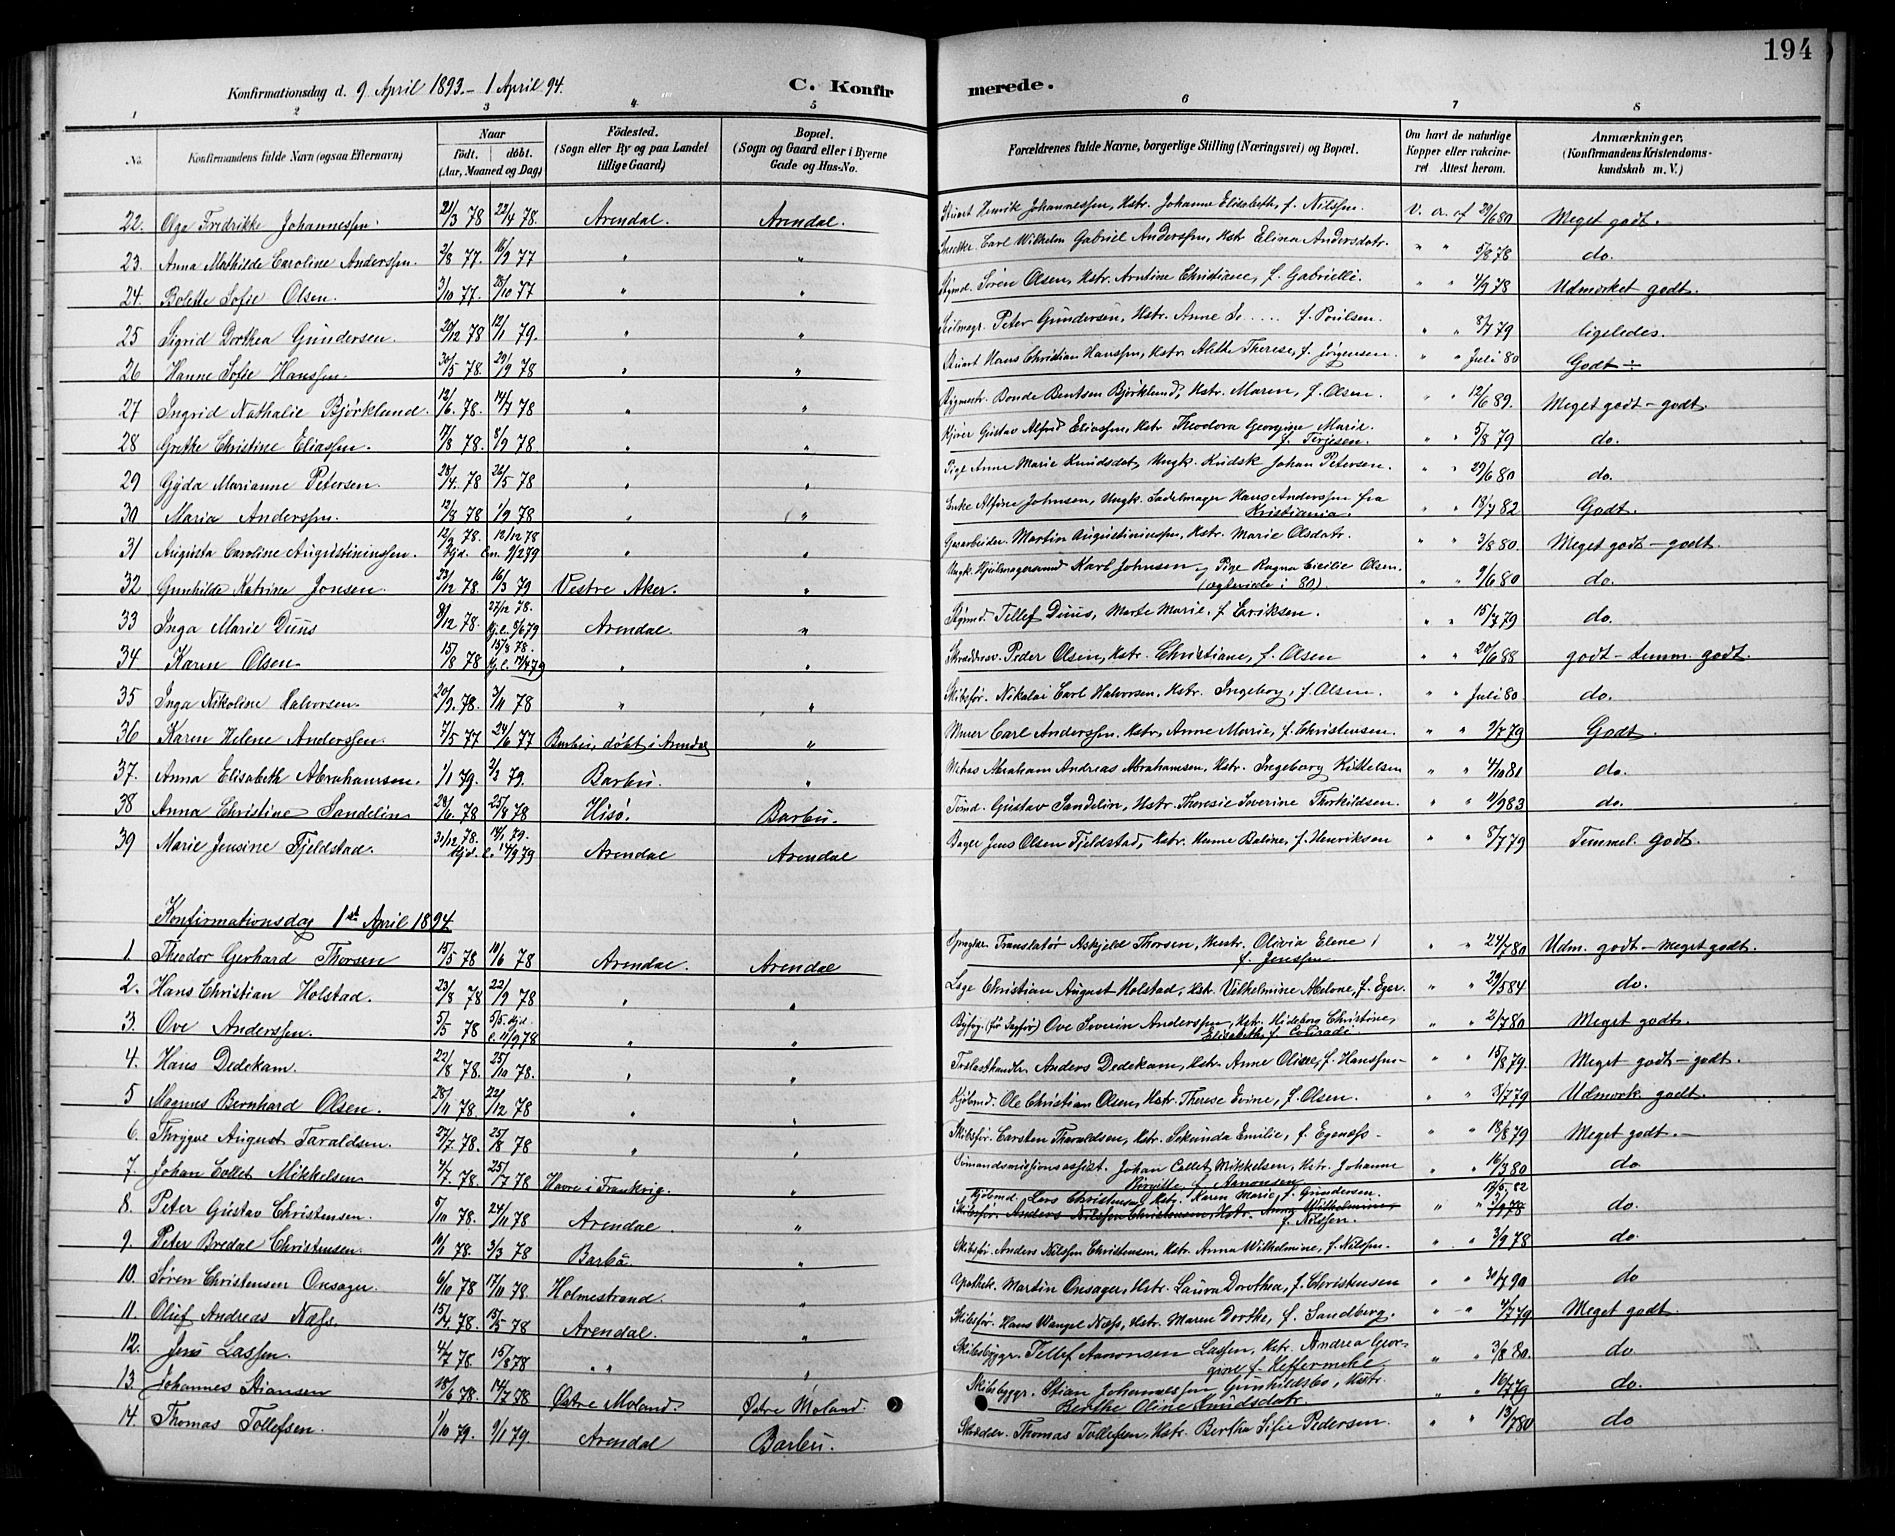 194
Konfirmationsdag d. 9 April 1893 - 1 April 94.
C. Konfirmerede.
1 2 3 4 5 6 7 8
No. Konfirmandens fulde Navn (ogsaa Efternavn) Naar Født. døbt. (Aar, Maaned og Dag) Födested. (Sogn eller By og paa Landet tillige Gaard) Bopæl. (Sogn og Gaard eller i Byerne Gade og Hus-No. Forældrenes fulde Navne, borgerlige Stilling (Næringsvei) og Bopæl. Om havt de naturlige Kopper eller vakcineret Attest herom. Anmærkninger, (Konfirmandens Kristendomskundskab m. V.)
22. Olga Fredrikke Johannessen 21/3 78 22/4 78. Arendal. Arendal. Stuert Henrik Johannessen, Hstr. Johanne Elisabeth, f. Nilsen. V. a. af 29/6 80 Meget godt.
23. Anna Mathilde Caroline Anderssen. 2/8 77. 16/9 77 " " Carl Wilhelm Gabriel Anderssen, Hstr Elina Andersdatr. " " 5/8 78 do.
24. Bolette Sofie Olsen. 3/10 77. 28/10 77 " " Styrmd. Søren Olsen, Hstr. Arntine Christiane, f. Gabrielli. " " 4/9 78 Udmærket godt.
25 Sigrid Dorthea Gundersen. 20/12 78 12/1 79. " " Seilmagr. Peter Gundersen, Hstr. Anne Se..... f. Poulsen. " " 8/7 79 ligeledes.
26 Hanne Sofie Hanssen 30/5 78. 29/9 78 " " Stuert Hans Christian Hanssen, Hstr. Alethe Therese, f. Jørgensen. " " Juli 80 Godt ÷
27 Ingrid Nathalie Bjørklund. 13/6. 78. 14/7 78 " " Bygmstr. Bonde Bentsen Bjørklund, Hstr. Maren, f. Olsen. " " 12/6 89. Meget godt - godt.
28 Grethe Christine Eliassen. 17/8 78. 8/9 78 " " Gustav Alfred Eliassen, Hstr Theodora Georgine Marie. f. Terjesen. " " 5/8 79 do.
29 Gyda Marianne Petersen. 28/4. 78 26/5 78 " " Pige Anne Marie Knudsdat, Ungk. Kudsk Johan Petersen. " " 29/6 80 do.
30 Maria Anderssen. 12/8 78 1/9 78 " " Enke Alfine Johnsen, Ungk. Sadelmager Hans Anderssen fra Kristiania. " " 13/7 82 Godt.
31 Augusta Caroline Augustininssen. 12/9 78. Hjd. 12/12 78 Em. 9/2 79 " " Gasarbeider. Martin Augustininssen, Hstr. Marie Olsdatr. " " 3/8 80. Meget godt - godt
32 Gunhilde Katrine Jonsen 23/12 78. 16/3 79 Vestre Aker. " Ungk. Hjulmagersvend Karl Johnsen og Pige Ragna Cecilie Olsen. (ægteviede i 80) " " 9/6 80 do.
33 Inga Marie Duus 8/12 78. 27/12 78. Hj. e. 8/6 79 Arendal. " Styrmd. Tellef Duus, Marte Marie, f. Eriksen. " " 15/7 79 do.
34 Karen Olsen. 15/8 78 15/8 78. Hj. e. 14/4 79 " " Skræddersv. Peder Olsen, Hstr. Christiane, f. Olsen " " 20/6 88 godt - temm. godt.
35 Inga Nikoline Halvorsen. 20/9. 78. 3/11 78 " " Skibsfør. Nikolai Carl Halvorsen, Hstr. Ingeborg, f. Olsen. " " Juli 80. do.
36 Karen Helene Anderssen. 7/5 77 24/6 77 Barbu, døbt i Arendal " Murer Carl Anderssen. Hstr. Anne Marie, f. Christensen. " " 9/7 79 Godt.
37. Anna Elisabeth Abrahamsen. 1/1 79. 2/2 79. Barbu. " Matros Abraham Andreas Abrahamsen, Hstr. Ingeborg Kittelsen " " 4/10 81 do.
38 Anna Christine Sandelin 28/6. 78 25/8 78 Hisø. Barbu. Tømd. Gustav Sandelin, Hstr. Theresie Severine Thorkildsen. " " 11/9 83 do.
39 Marie Jensine Fjeldstad. 31/12 78. Hjd. 14/1 79. e. 14/9 79 Arendal Arendal Bager Jens Olsen Fjeldstad, Hstr. Hanne Baline, f. Henriksen " " 8/7 79 Temmel. godt.
Konfirmationsdag 1st April 1894
1 Theodor Gerhard Thorsen 15/5 78 10/6 78 Arendal. Arendal Translatør Askjeld Thorsen, Hustr. Olivia Elene f. Jenssen " " 24/7 80 Udm. godt - Meget godt.
2. Hans Christian Holstad. 23/8 78 22/9 78 " " Læge Christian August Holstad, Hstr. Vilhelmine Abelone, f. Eger. " " 29/5 84 do.
3. Ove Anderssen. 5/5 78 5/5 Hjd. e. 11/9 78 " " Byfog. (før Sagfør) Ove Severin Anderssen, Hstr. Hideborg Christine, Elisabeth, f. Conradi " " 2/7 80 Meget godt.
4. Hans Dedekam. 22/8 78. 25/10 78. " " Trælasthandler Anders Dedekam, Hstr. Anne Olise, f. Hanssen - " " 15/8 79. Meget godt - godt.
5 Magnus Bernhard Olsen. 28/11 78 22/12 78 " " Kjøbmd. Ole Christian Olsen, Hstr. Therese Evine, f. Olsen. " " 3/7 79 Udmærk. godt.
6. Thrygve August Taraldsen. 27/7 78. 25/8 78 " " Skibsfør. Carsten Tharaldsen, Hstr. Sekunda Emilie, f. Egenæss - " " 18/8 79 Meget godt. -
7 Johan Collet Mikkelsen 4/7. 78. 25/7 78 Havre i Frankrig. " Sømandsmissionsassist. Johan Collet Mikkelsen, Hstr. Johanne Birgitte, f. Aanonsen " " 16/3 80 do
8. Peter Gustav Christensen. 5/10 78. 24/11 78 Arendal. " Kjøbmd. Lars Christensen, Hstr. Karen Marie, f. Gundersen. Skibsfør. Anders Nilssen Christensen, Hstr. Anna Wilhelmine, f. Nilssen. " " 17/5. 82 3/9 78 do.
9. Peter Bredal Christensen. 10/1 78. 3/3 78 Barbu. " Skibsfør. Anders Nilssen Christensen, Hstr. Anna Wilhelmine, f. Nilsen. " " 3/9 78 do.
10. Søren Christensen Onsager. 6/10 78 17/11 78. Holmestrand. " Apothek. Martin Onsager, Hstr. Laura Dorothea, f. Christensen " " 30/7 90 do
11. Oluf Andreas Næss. 15/4 78. 13/5 78 Arendal. " Skibsfør. Hans Wangel Næss, Hstr. Maren Dorthe, f. Sandberg. " " 4/7 79 Meget godt.
12. Jens Lassen. 4/7 78. 15/8 78 " " " Skibsbyggr. Tellef Aanonsen Lassen, Hstr. Andrea Georgine f. Heffermehl. " " 3/8 80. do
13. Johannes Stiansen 18/6 78. 14/7 78 Østre Moland. Østre Moland. Skibsbyggr. Stian Johannessen Gunhildsbo, Hustr. Berthe Oline Knudsdatr. " " 16/7 79 do.
14. Thomas Tollefsen. 1/10 79. 9/1 79 Arendal Barbu. Skrædder. Thomas Tollefsen, Hstr. Bertha Sofie Pedersen. " " 13/7 80 do